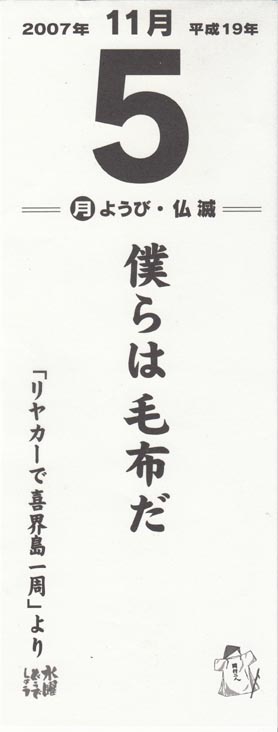 2007年 11月 平成19年
5
月ようび・仏滅
僕らは毛布だ
「リヤカーで喜界島一周」より
水曜
どうで
しょう